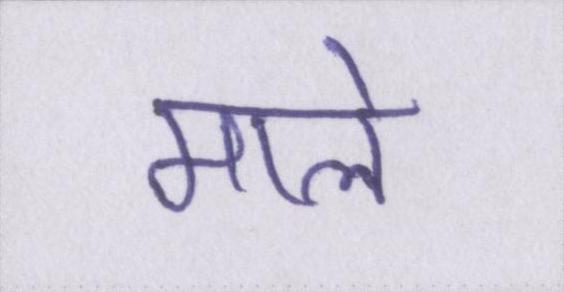 माले